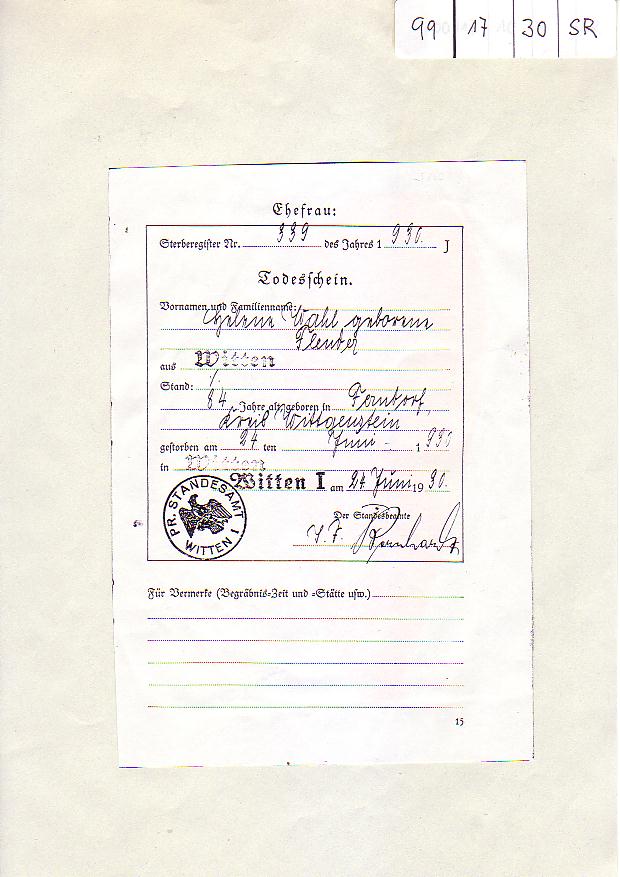 99 17 30 SR
Ehefrau:
Sterberegister Nr. 339 des Jahres 1930. J
Todesschein.
Vornamen und Familienname:
Helene Wahl geborene
aus Witten
Stand: /.
84 Jahre alt, geboren in Ferndorf,
Kreis Wittgenstein
gestorben am 24 ten Juni 1930
in Witten
Witten I am 24 Juni 1930.
PR. STANDESAMT
WITTEN I
Der Standesbeamte
Für Vermerke (Begräbnis-Zeit und -Stätte usw.)
15